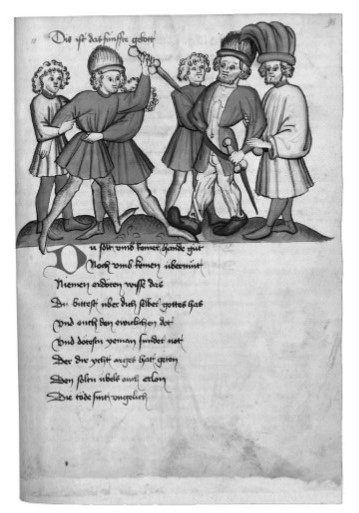 Dis ist das funffte gebott
Du solt vmb keiner hande gut
Noch vmb keinen vbermut
Niemen erdoten wisse das
Du bittest vber dich selber gottes has
Vnd ouch den ewiclichen dot
Vnd dotestu yeman sunder not
Der dir ycht arges hat geton
Den soltu ouch erlon
Die tode sint vngelich